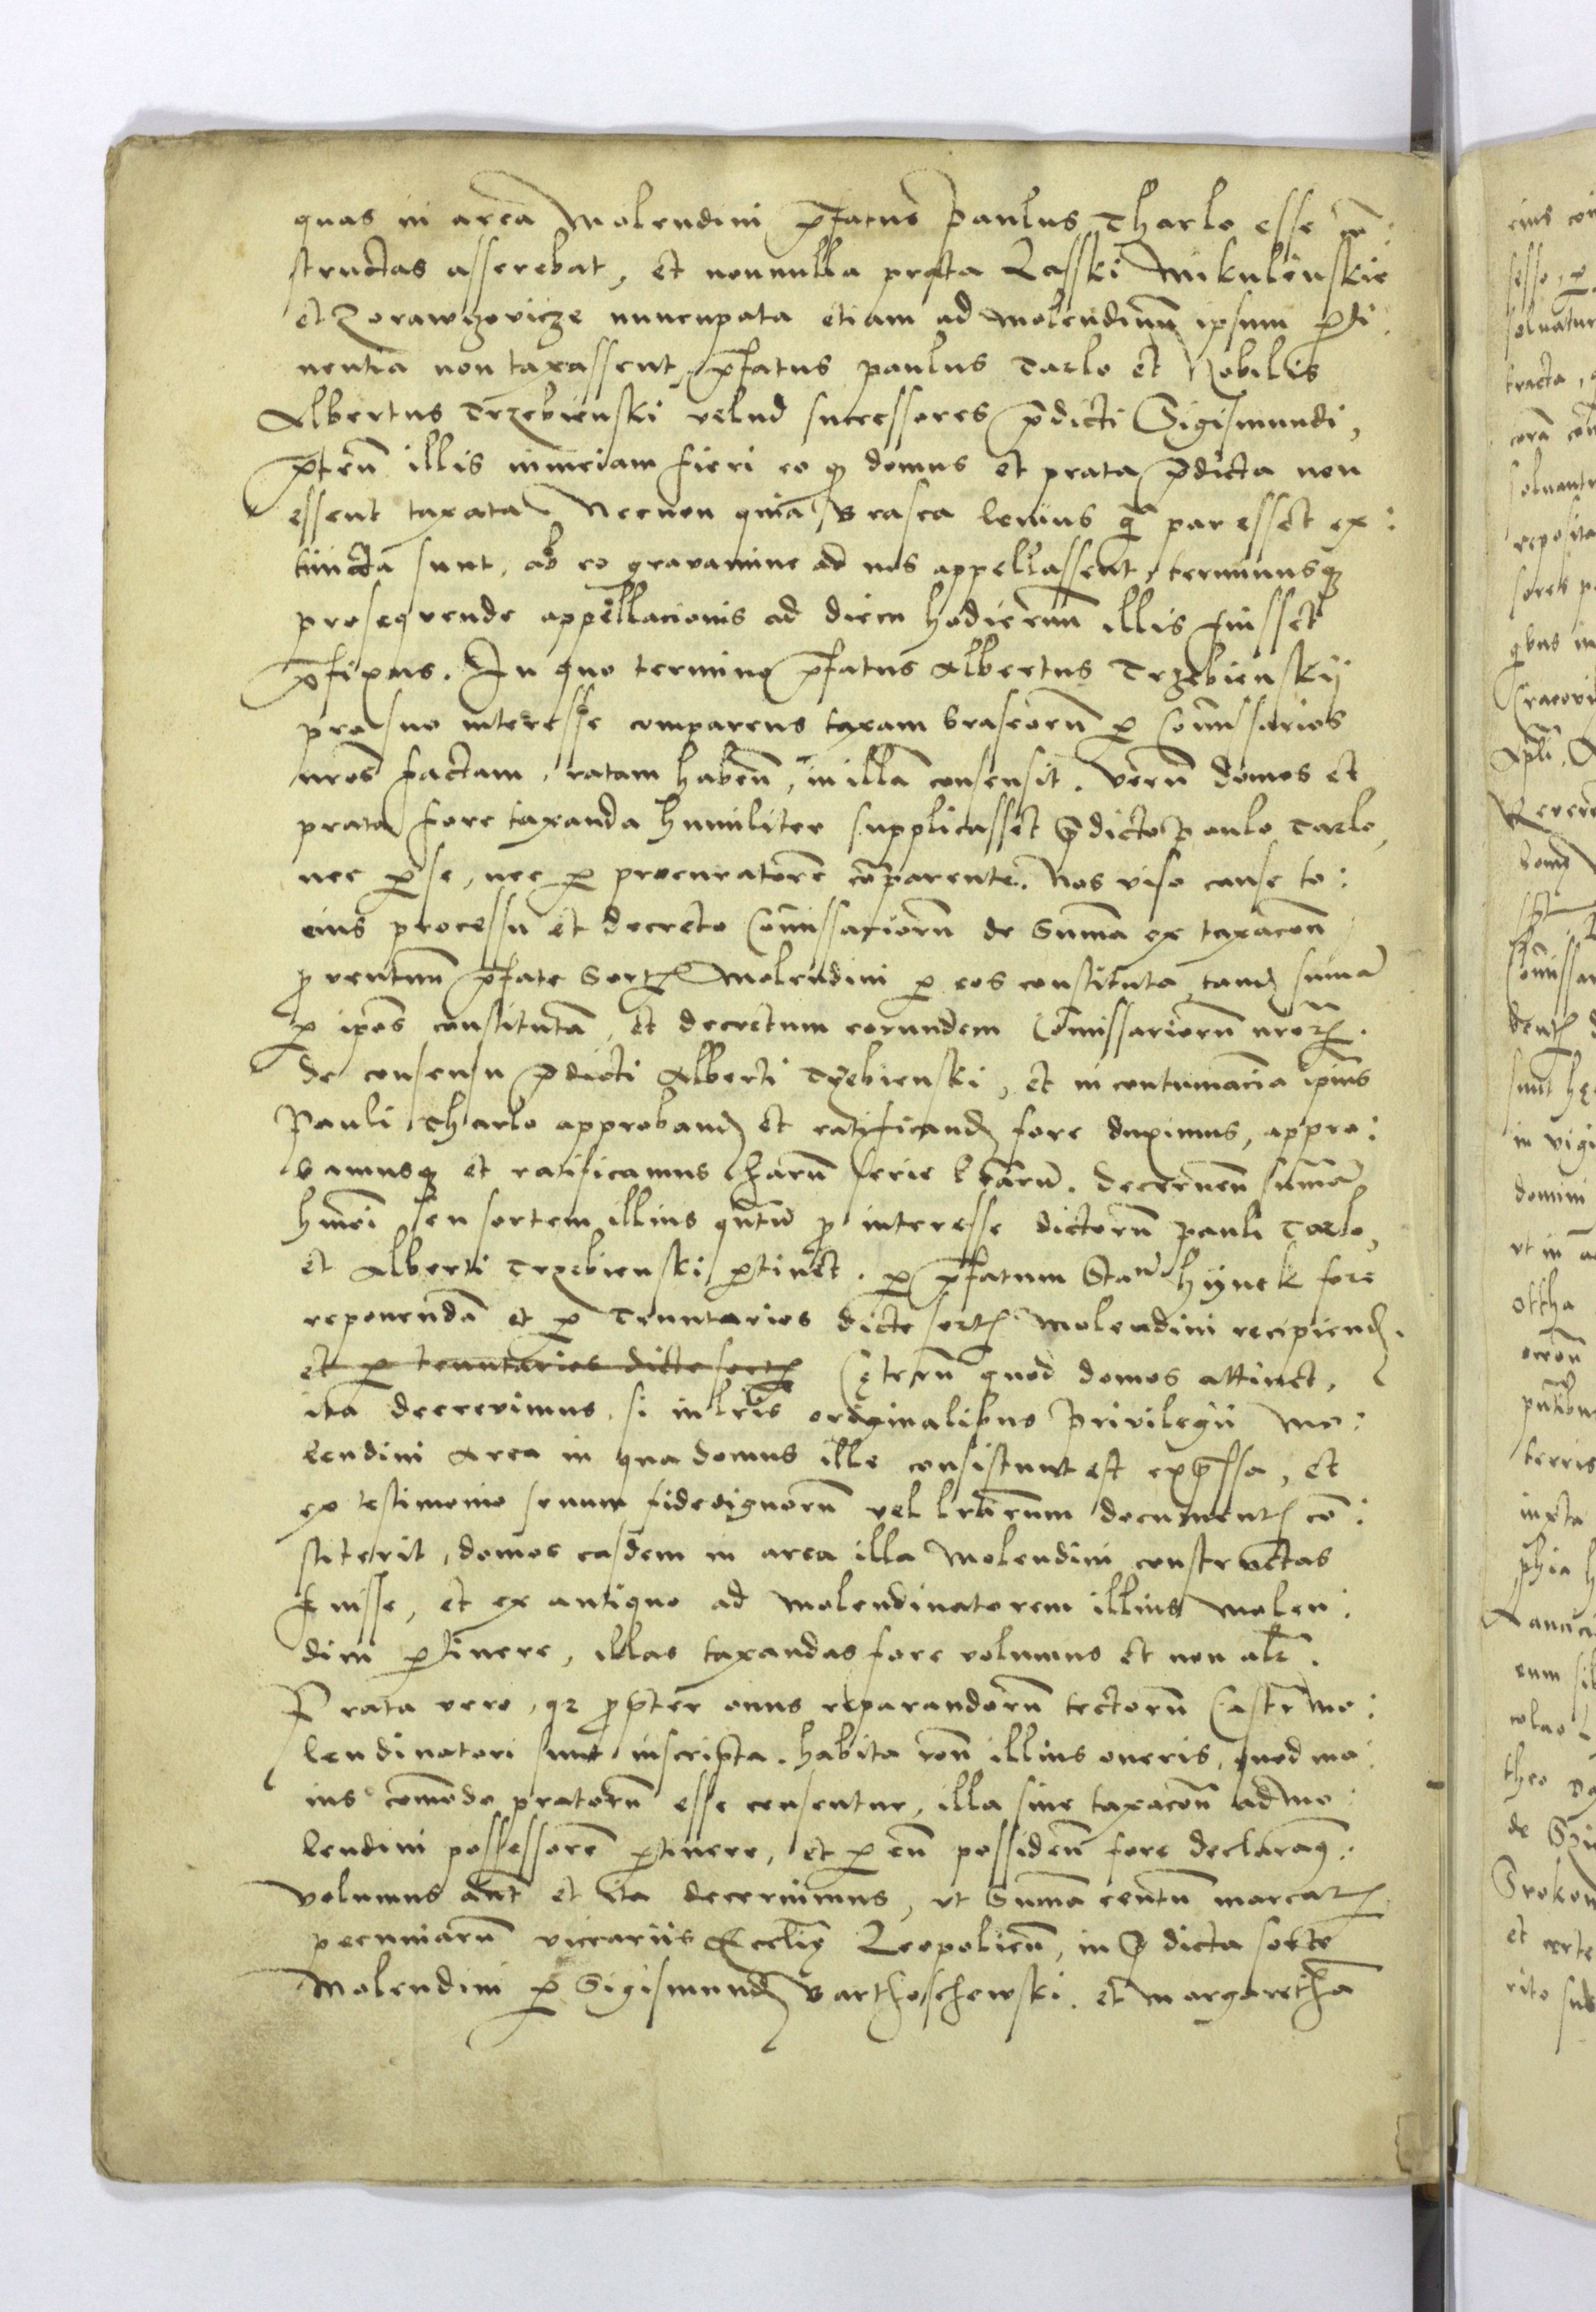 quas in area Molendini p̄fatus Paulus Tharlo esse cō:
structas asserebat, et nonnulla prata Lasski Mikulinskie
et Zorawczovicze nuncupata etiam ad molendinū ipsum pti:
nentia non taxassent, p̄fatus paulus Tarlo et Nobilis
Albertus Trzebienski velud successores p̄dicti Sigismundi,
p̄teñ illis iniuriam fieri eo q domus et prata p̄dicta non
essent taxata Necnon quia brasea levius q̄ par esset ex:
tincta sunt, ab eo gravamine ad nos appellassent, terminusq
prosequende appellacionis ad diem hodiernū illis fuisset
p̄fixus. In quo termino p̄fatus Albertus Trzebienskij
pro suo interesse comparens taxam braseorū p Com̄issarios
nros̄ factam, ratam habeñ, in illā consensit. Verū domos et
prata fore taxanda humiliter supplicasset p̄dicto Paulo Tarlo,
nec p se, nec p procuratorē cōparente. Nos viso cause to:
cius processu et decreto Com̄issariorū de Sum̄a ex taxacoñ
p̱ventuum p̄fate Sortꝭ Molendini p eos constituta, tand sum̄ā
p ipos̄ constitutā, et decretum eorundem Com̄issariorū nroꝝ.
de consensu p̄dicti Alberti Trzebienski, et in contumacia ipīus
Pauli Tharlo approband et ratificand fore duximus, appro:
bamusq et ratificamus harū serie lrārū. decerneñ sum̄ā
hmōi seu sortem illius qn̄tū p̱ interesse dictorū pauli Tarlo,
et Alberti Trzebienski ptinet. p p̄fatum Stan̄ Hynek fore
reponendā et p Tenutarios dicte sortꝭ Molendini recipiend.
et p tenutarios dicte sortꝭ Cętrerū quod domos attinet,
ita decrevimus, si in lrīs originalibus Privilegii mo:
lendini Area in qua domus ille consistunt est exp̄ssa, et
ex testimonio senum fidedignorū vel lrārum documentꝭ cō:
stiterit, domos easdem in area illa Molendini constructas
fuisse, et ex antiquo ad molendinatorem illius molen:
dini ptinere, illas taxandas fore volumus et non alr̄.
Prata vero, q2 p̱pter onus reparandorū tectorū Castri mo:
lendinatori sunt inscripta. habita roñ illius oneris, quod ma:
ius com̄odo pratorū esse censentur, illa sine taxacoñ ad mo:
lendini possessorē ptinere, et p eū possideñ fore declaram9:
volumus aūt et ita decernimus, ut Sum̄a centū marcaꝝ
pecuniarū vicariis Ecclię Leopolieñ, in p̄dicta sorte
Molendini p Sigismund Barthoschewski. et Margarethā